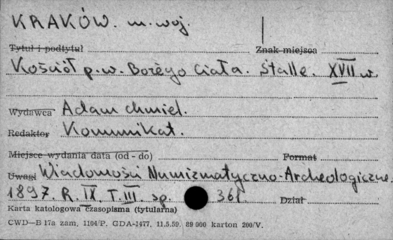 KRAKÓW. m. woj.
Tytuł i podtytuł Znak miejsca
Kościół p.w. Bożego Ciała. Stalle. XVII w.
Wydawca Adam Chmiel.
Redaktor Komunikat.
Miejsce wydania data (od - do) Format
Uwagi Wiadomości Numizmatyczno-Archeologiczne.
1897. R. IX. T. III. sp. 361. Dział
Karta katalogowa czasopisma (tytularna)
CWD—B 17a zam. 1104/P. GDA-1477, 11.5.59. 89 000 karton 200/V.